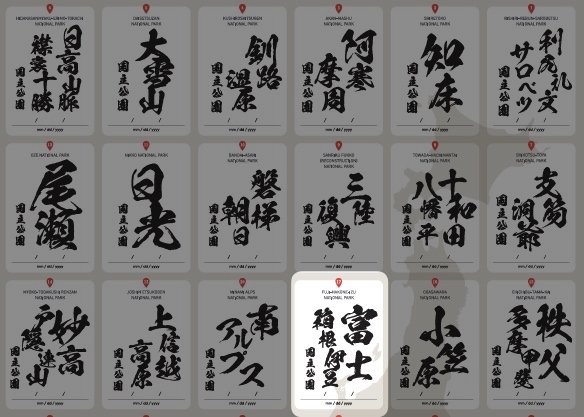 HIDAKASANMYAKU-ERIMO-TOKACHI
NATIONAL PARK
日高山脈
襟裳十勝
国立公園
mm / dd / yyyy
DAISETSUZAN
NATIONAL PARK
大雪山
国立公園
mm / dd / yyyy
KUSHIROSHITSUGEN
NATIONAL PARK
釧路
湿原
国立公園
mm / dd / yyyy
AKAN-MASHU
NATIONAL PARK
阿寒
摩周
国立公園
mm / dd / yyyy
SHIRETOKO
NATIONAL PARK
知床
国立公園
mm / dd / yyyy
RISHIRI-REBUN-SAROBETSU
NATIONAL PARK
利尻礼文
サロベツ
国立公園
mm / dd / yyyy
OZE NATIONAL PARK
尾瀬
国立公園
mm / dd / yyyy
NIKKO NATIONAL PARK
日光
国立公園
mm / dd / yyyy
BANDAI-ASAHI
NATIONAL PARK
磐梯
朝日
国立公園
mm / dd / yyyy
SANRIKU FUKKO
(RECONSTRUCTION)
NATIONAL PARK
三陸
復興
国立公園
mm / dd / yyyy
TOWADA-HACHIMANTAI
NATIONAL PARK
十和田
八幡平
国立公園
mm / dd / yyyy
SHIKOTSU-TOYA
NATIONAL PARK
支笏
洞爺
国立公園
mm / dd / yyyy
MYOKO-TOGAKUSHI RENZAN
NATIONAL PARK
妙高
戸隠連山
国立公園
mm / dd / yyyy
JOSHIN'ETSUKOGEN
NATIONAL PARK
上信越
高原
国立公園
mm / dd / yyyy
MINAMI ALPS
NATIONAL PARK
南
アルプス
国立公園
mm / dd / yyyy
FUJI-HAKONE-IZU
NATIONAL PARK
富士
箱根伊豆
国立公園
mm / dd / yyyy
OGASAWARA
NATIONAL PARK
小笠
原
国立公園
mm / dd / yyyy
CHICHIBU-TAMA-KAI
NATIONAL PARK
秩父
多摩甲斐
国立公園
mm / dd / yyyy